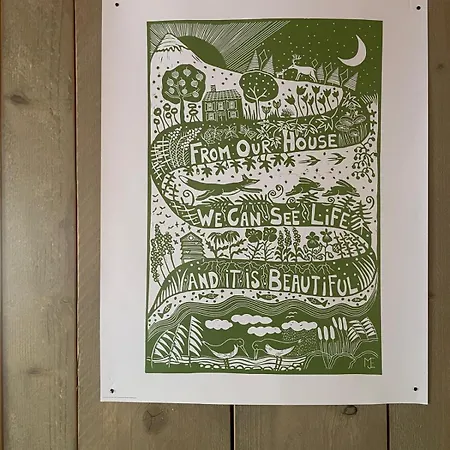 FROM OUR HOUSE
WE CAN SEE LIFE
AND IT IS BEAUTIFUL